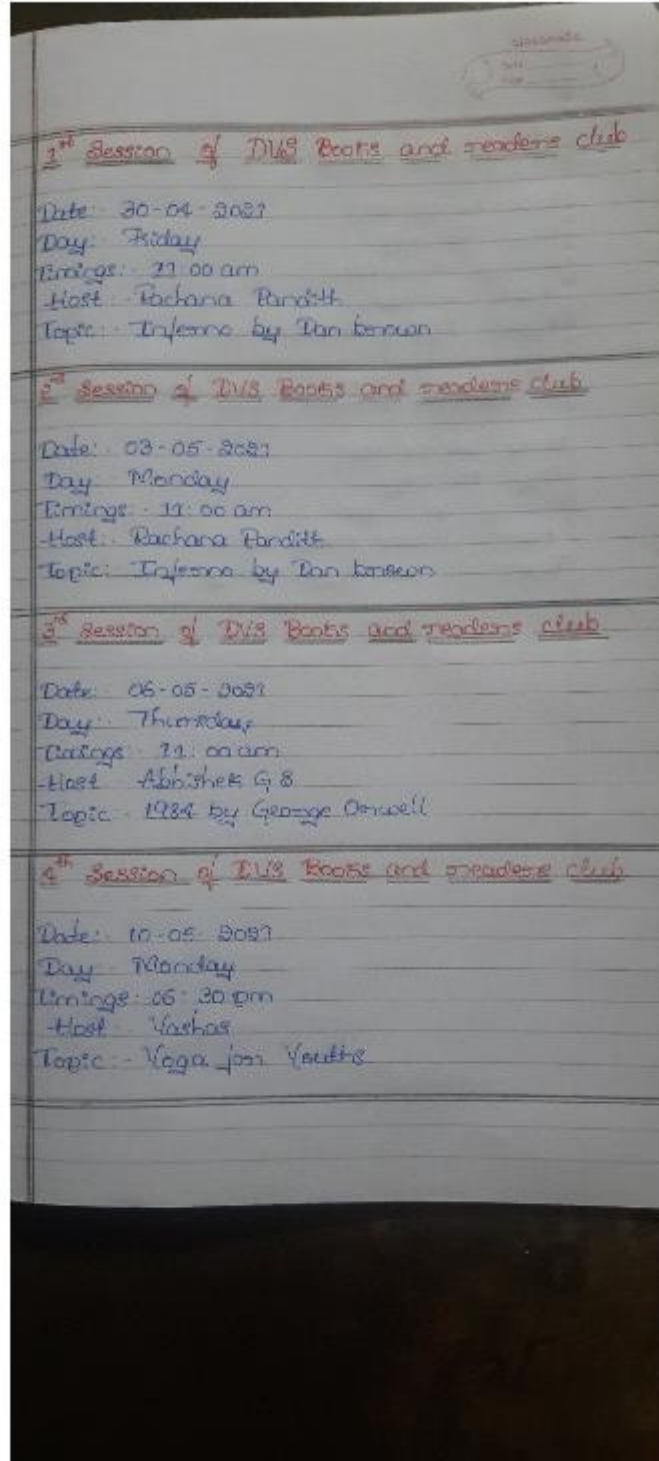 classmate
Date
Page
1st Session of DVS Books and readers club
Date:- 30-04-2021
Day:- Friday
Timings:- 11:00 am
Host:- Rachana Pandith
Topic:- Inferno by Dan brown
2nd Session of DVS Books and readers club
Date:- 03-05-2021
Day:- Monday
Timings:- 11:00 am
Host:- Rachana Pandith
Topic:- Inferno by Dan brown
3rd Session of DVS Books and readers club
Date:- 06-05-2021
Day:- Thursday
Timings:- 11:00 am
Host:- Abhishek G S
Topic:- 1984 by George Orwell
4th Session of DVS Books and readers club
Date:- 10-05-2021
Day:- Monday
Timings:- 06:30 pm
Host:- Yashas
Topic:- Yoga for Youths